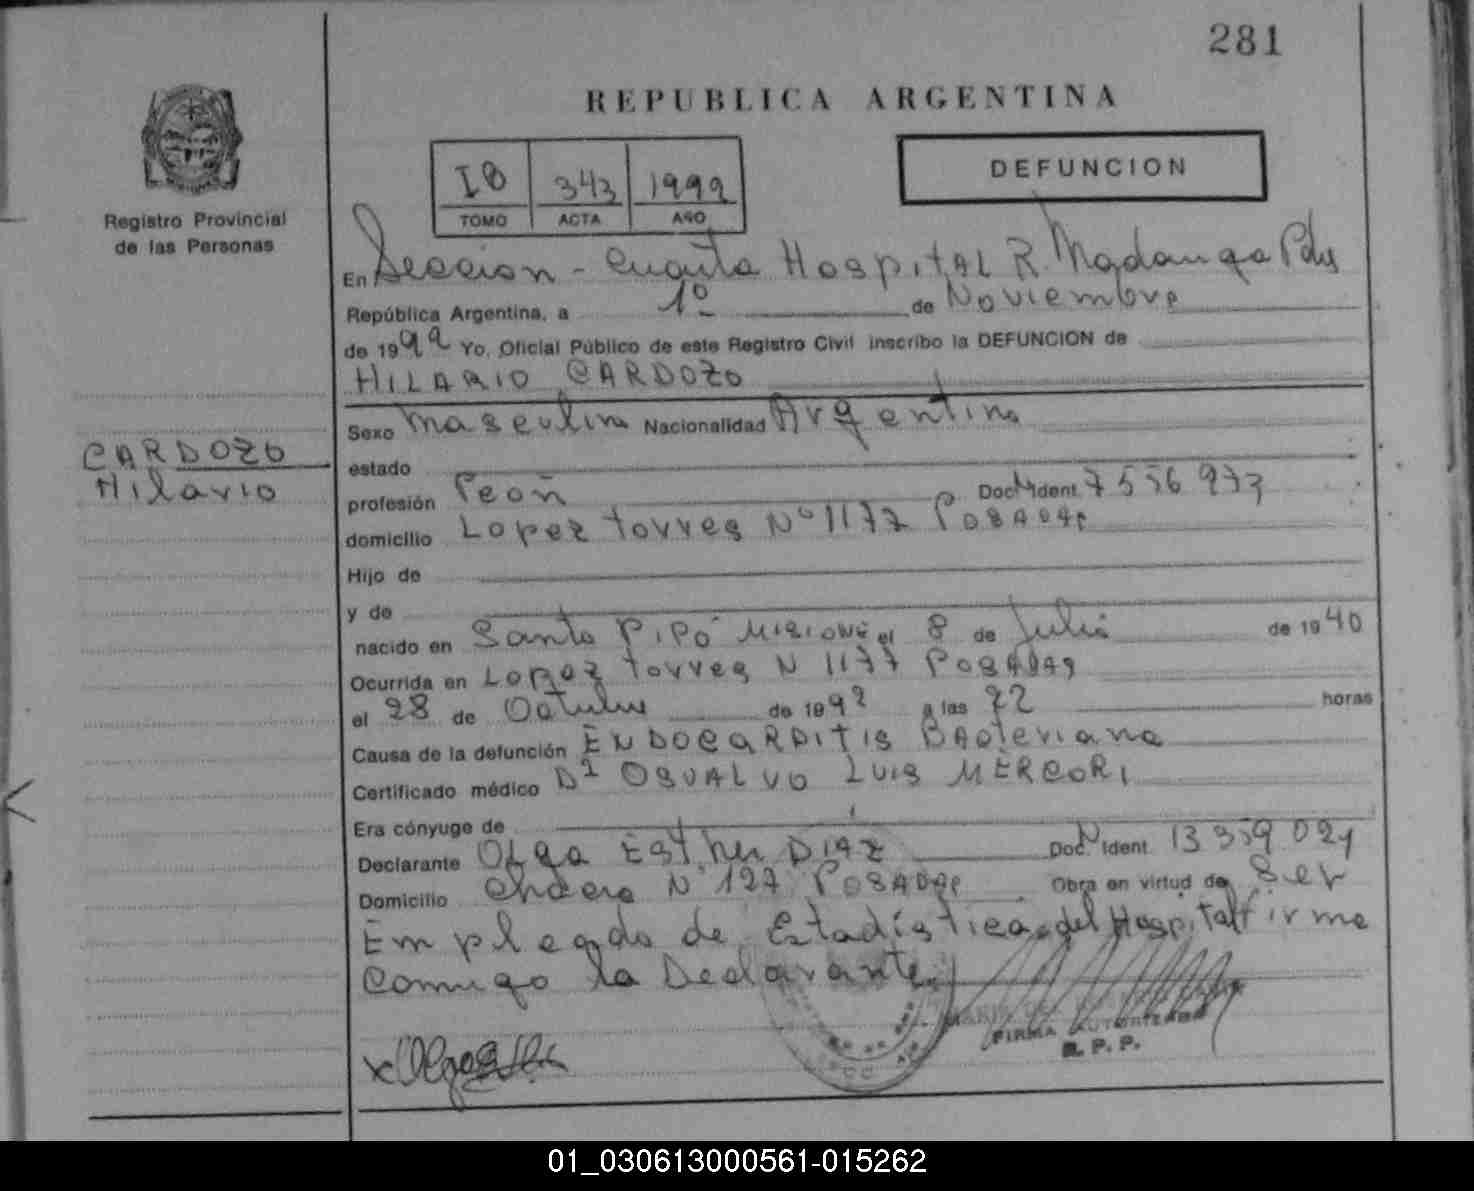 281
REPUBLICA ARGENTINA
Registro Provincial
de las Personas
I8 343 1992
TOMO ACTA AÑO
DEFUNCION
En Seccion - Cuarta Hospital R. Madariaga Pdas
República Argentina, a 1º de Noviembre
de 1992 Yo, Oficial Público de este Registro Civil inscribo la DEFUNCION de
HILARIO CARDOZO
CARDOZO
Hilario
Sexo Masculino Nacionalidad Argentino
estado
profesión Peon Doc. N Ident. 7556973
domicilio Lopez Torres Nº 1177 Posadas
Hijo de
y de
nacido en Santo Pipó Misiones el 8 de Julio de 1940
Ocurrida en Lopez Torres N 1177 Posadas
el 28 de Octubre de 1992 a las 22 horas
Causa de la defunción ENDOCARDITIS BACTERIANA
Certificado médico Dr OSVALDO LUIS MERCORI
Era cónyuge de
Declarante Olga Esther Diaz Doc. N Ident. 13359021
Domicilio Chacra Nº 127 Posadas Obra en virtud de Ser
Empleada de Estadística del Hospital Firma
Comigo la Declarante.
FIRMA AUTORIZADA
R. P. P.
01_030613000561-015262